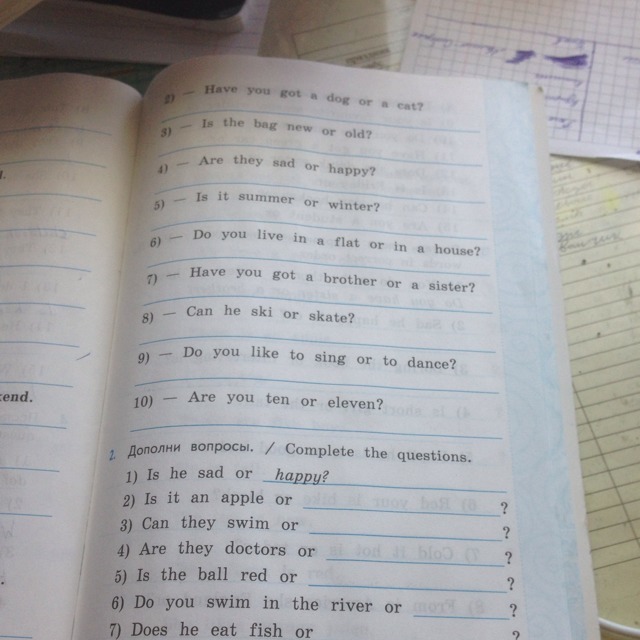 2) — Have you got a dog or a cat?
3) — Is the bag new or old?
4) — Are they sad or happy?
5) — Is it summer or winter?
6) — Do you live in a flat or in a house?
7) — Have you got a brother or a sister?
8) — Can he ski or skate?
9) — Do you like to sing or to dance?
10) — Are you ten or eleven?
2. Дополни вопросы. / Complete the questions.
1) Is he sad or happy?
2) Is it an apple or ?
3) Can they swim or ?
4) Are they doctors or ?
5) Is the ball red or ?
6) Do you swim in the river or ?
7) Does he eat fish or ?
kend.